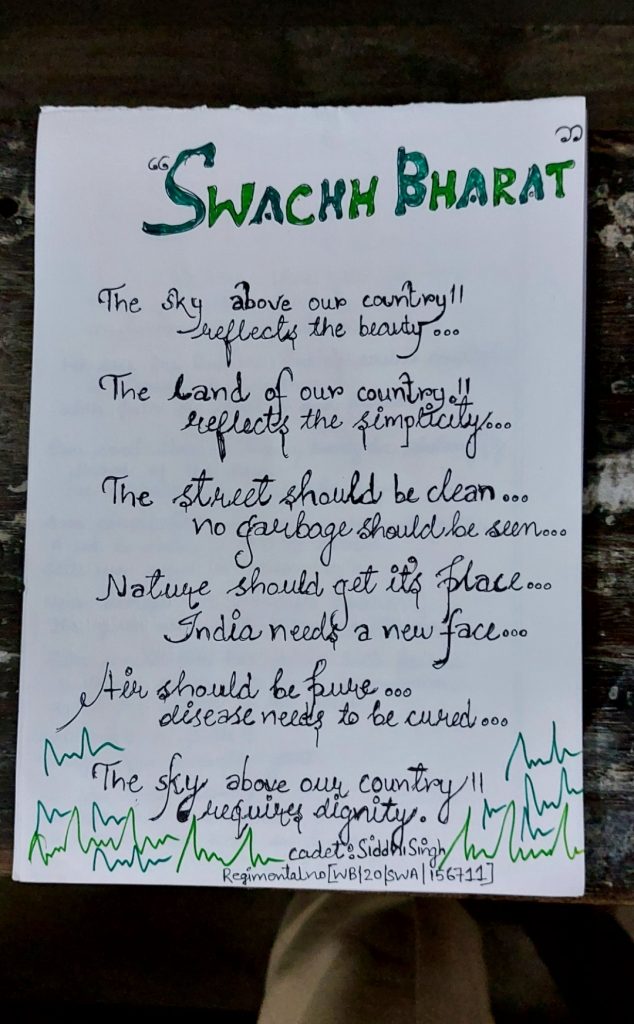 “SWACHH BHARAT”
The sky above our country!!
reflects the beauty...
The Land of our country.!!
reflects the simplicity...
The street should be clean...
no garbage should be seen...
Nature should get it's place...
India needs a new face...
Air should be pure...
disease needs to be cured...
The sky above our country!!
requires dignity.
cadet: Siddhi Singh
Regimental no [WB/20/SWA/156711]